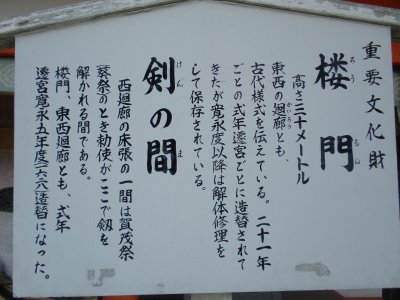 重要文化財
楼門
ろう もん
高さ三十メートル
東西の廻廊とも、
かいろう
古代様式を伝えている。二十一年
ごとの式年遷宮ごとに造替されて
きたが寛永度以降は解体修理を
して保存されている。
剣の間
けん ま
西廻廊の床張の一間は賀茂祭
(葵祭)のとき勅使がここで剣を
解かれる間である。
楼門、東西廻廊とも、式年
遷宮寛永五年度(一六二八)造替になった。